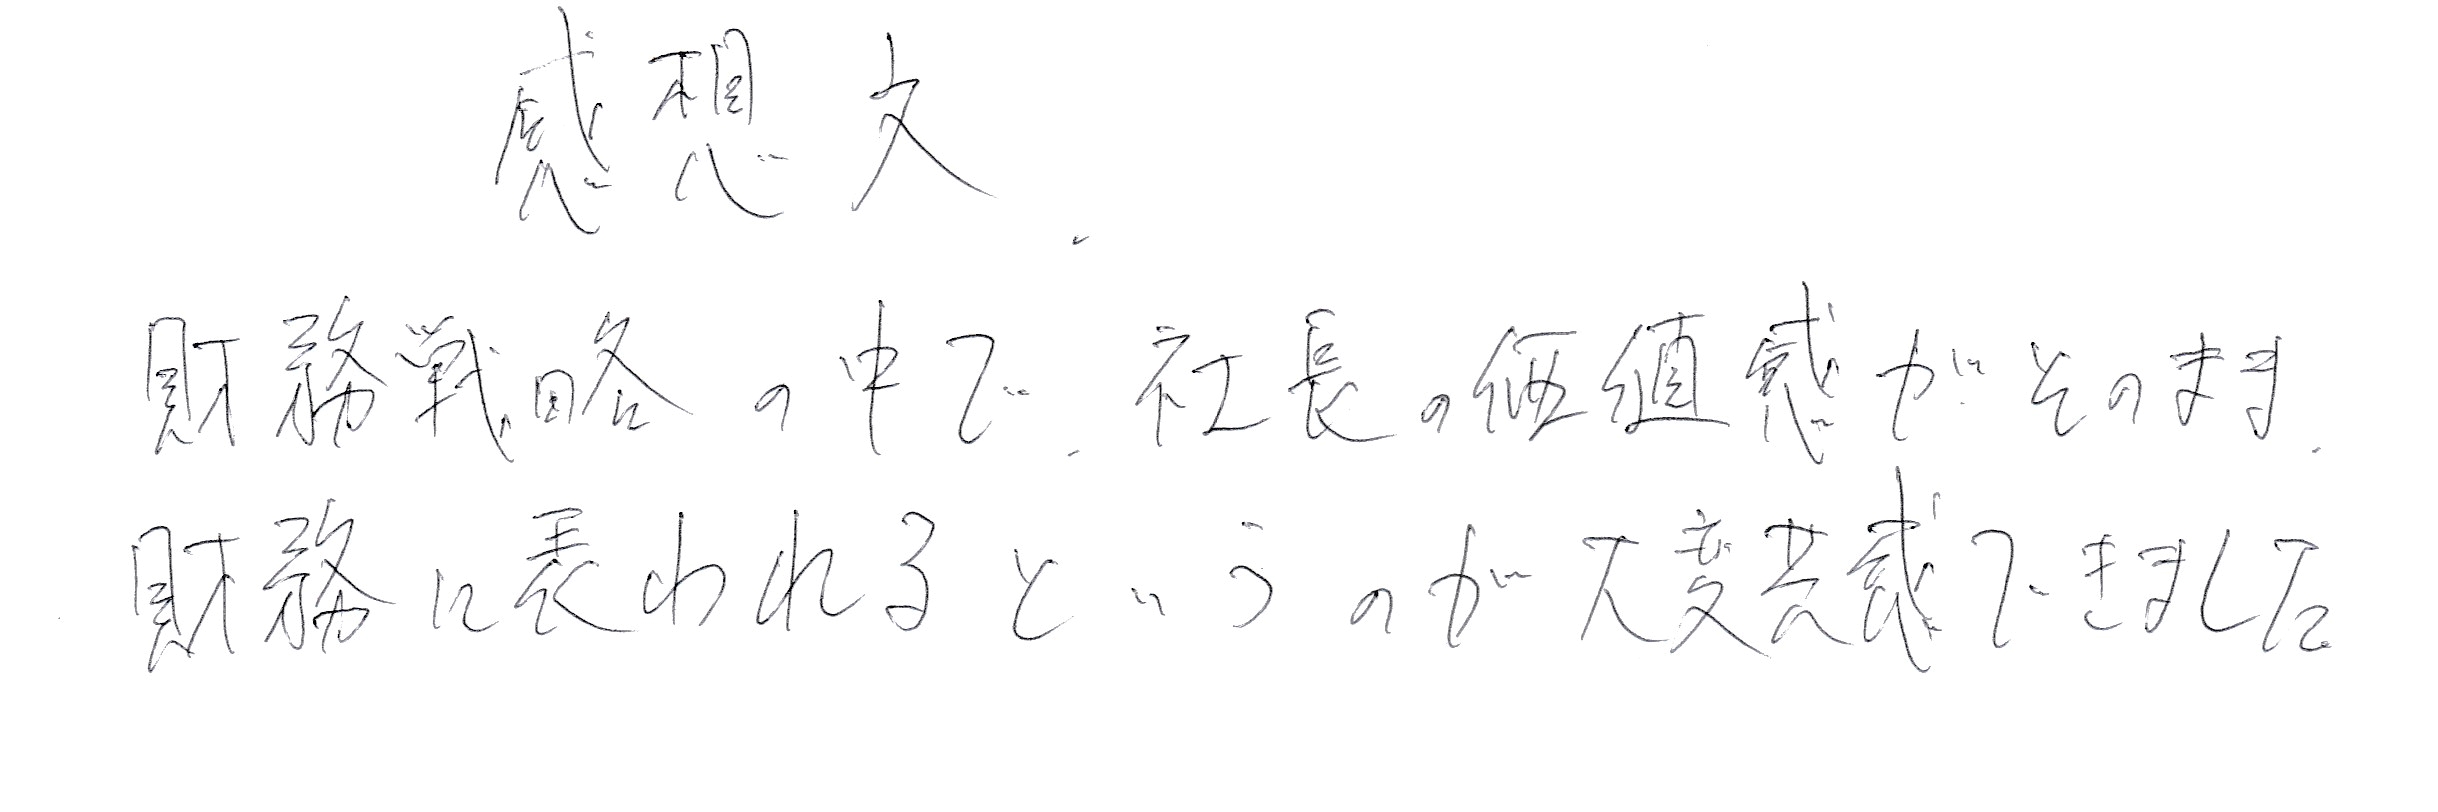 感想文
財務戦略の中で、社長の価値感がそのまま
財務に表われるというのが大変共感できました